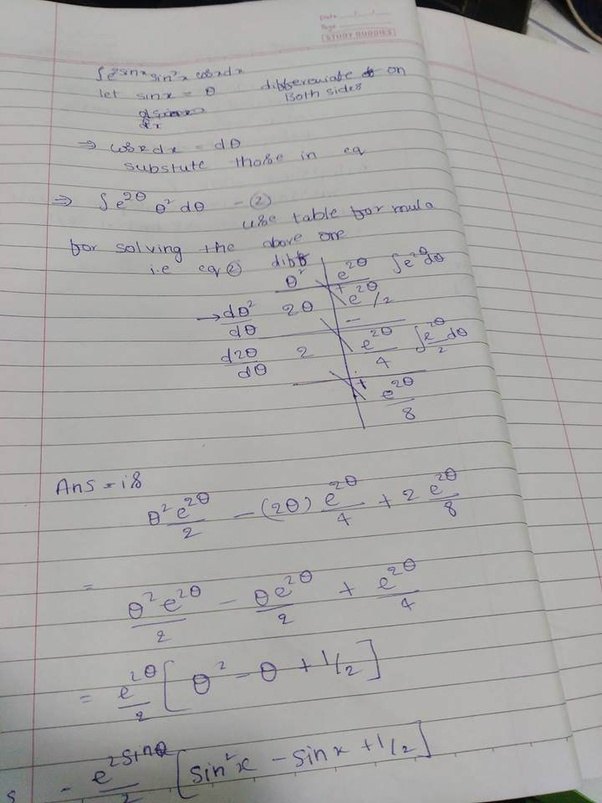 Date
Page
STUDY BUDDIES
∫e^2sinx sin²x cosxdx
let sinx = θ differenciate on
Both sides
⇒ cosxdx = dθ
substute those in eq
⇒ ∫e^2θ θ² dθ - ②
use table formula
for solving the above one
i.e eq② diff
θ² e^2θ ∫e^2θ dθ
→ dθ²/dθ 2θ + e^2θ/2
-
d2θ/dθ 2 e^2θ/4 ∫e^2θ/2 dθ
+
e^2θ/8
Ans = is
θ² e^2θ/2 - (2θ) e^2θ/4 + 2 e^2θ/8
= θ² e^2θ/2 - θe^2θ/2 + e^2θ/4
= e^2θ/2 [θ² - θ + 1/2]
e^2sin/2 [sin²x - sinx + 1/2]